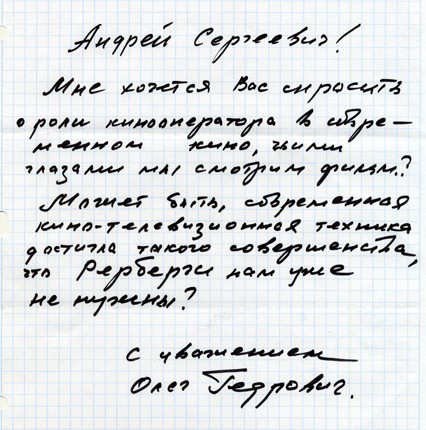 Андрей Сергеевич!
Мне хочется Вас спросить
о роли кинооператора в совре-
менном кино, чьими
глазами мы смотрим фильм?
Может быть, современная
кино-телевизионная техника
достигла такого совершенства,
что Рерберги нам уже
не нужны?
С уважением
Олег Гедрович.